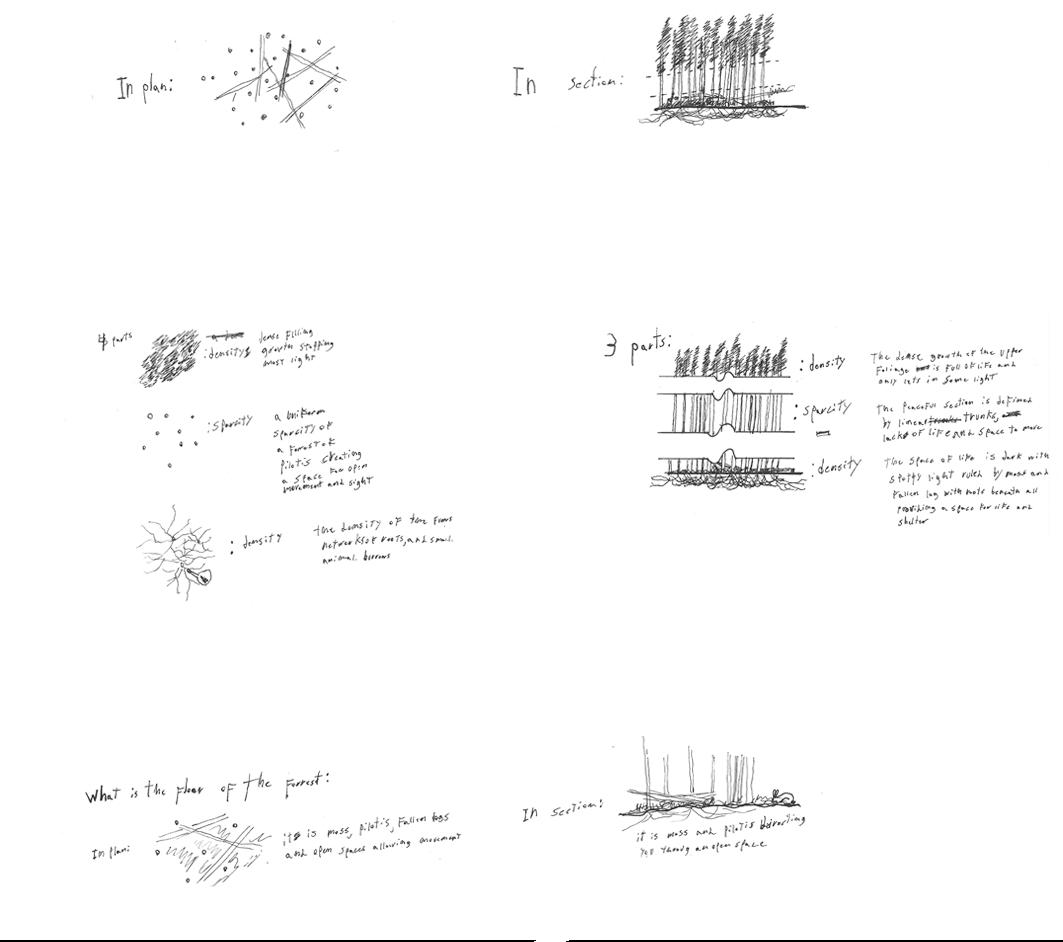 In plan:
In section:
parts
:density
dense filling
growth stopping
most light
:sparcity
a uniform
sparcity of
a forest of
pilotis creating
a space for open
movement and sight
: density
the density of the
networks of roots, and small
animal burrows
3 parts:
:density
The dense growth of the upper
Foliage is full of life and
only lets in some light
:sparcity
The Peaceful section is defined
by linear trunks,
lack of life and space to move
:density
The space of life is dark with
spotty light ruled by moss and
Fallen log with roots beneath all
providing a space for life and
shelter
What is the floor of the Forrest:
In plan:
it is moss, pilotis, Fallen logs
and open spaces allowing movement
In section:
it is moss and pilotis directing
you throug an open space